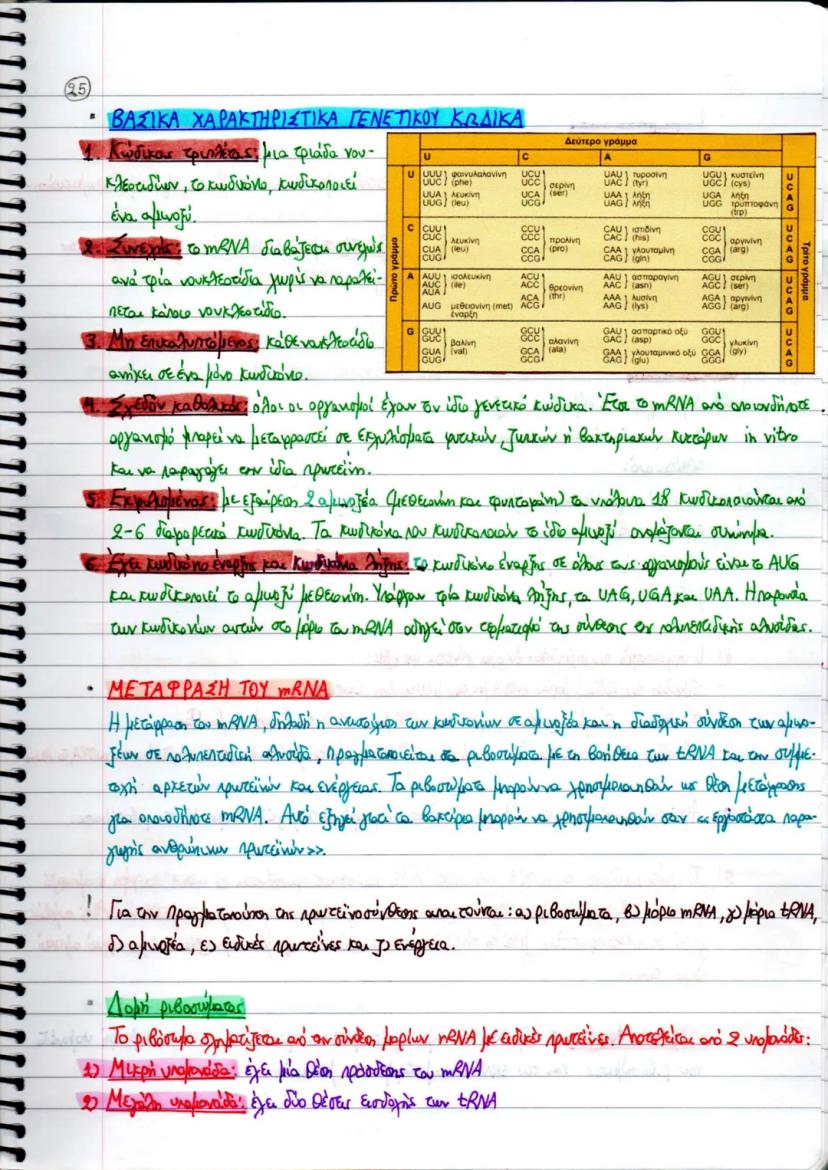 25
• ΒΑΣΙΚΑ ΧΑΡΑΚΤΗΡΙΣΤΙΚΑ ΓΕΝΕΤΙΚΟΥ ΚΩΔΙΚΑ
1. Κώδικας τριπλέτας: μια τριάδα νου-
κλεοτιδίων, το κωδικόνιο, κωδικοποιεί
ένα αμινοξύ.
2. Συνεχής: το mRNA διαβάζεται συνεχώς
ανά τρία νουκλεοτίδια χωρίς να παραλεί-
πεται κάποιο νουκλεοτίδιο.
3. Μη επικαλυπτόμενος: κάθε νουκλεοτίδιο
ανήκει σε ένα μόνο κωδικόνιο.
Δεύτερο γράμμα
U C A G
Πρώτο γράμμα
Τρίτο γράμμα
U
UUU UUC φαινυλαλανίνη (phe)
UUA UUG λευκίνη (leu)
UCU UCC UCA UCG σερίνη (ser)
UAU UAC τυροσίνη (tyr)
UAA λήξη
UAG λήξη
UGU UGC κυστεΐνη (cys)
UGA λήξη
UGG τρυπτοφάνη (trp)
U C A G
C
CUU CUC CUA CUG λευκίνη (leu)
CCU CCC CCA CCG προλίνη (pro)
CAU CAC ιστιδίνη (his)
CAA CAG γλουταμίνη (gln)
CGU CGC CGA CGG αργινίνη (arg)
U C A G
A
AUU AUC AUA ισολευκίνη (ile)
AUG μεθειονίνη (met) έναρξη
ACU ACC ACA ACG θρεονίνη (thr)
AAU AAC ασπαραγίνη (asn)
AAA AAG λυσίνη (lys)
AGU AGC σερίνη (ser)
AGA AGG αργινίνη (arg)
U C A G
G
GUU GUC GUA GUG βαλίνη (val)
GCU GCC GCA GCG αλανίνη (ala)
GAU GAC ασπαρτικό οξύ (asp)
GAA GAG γλουταμινικό οξύ (glu)
GGU GGC GGA GGG γλυκίνη (gly)
U C A G
4. Σχεδόν καθολικός: όλοι οι οργανισμοί έχουν τον ίδιο γενετικό κώδικα. Έτσι το mRNA από οποιονδήποτε
οργανισμό μπορεί να μεταφραστεί σε εκχυλίσματα φυτικών, ζωικών ή βακτηριακών κυττάρων in vitro
και να παραγάγει την ίδια πρωτεΐνη.
5. Εκφυλισμένος: με εξαίρεση 2 αμινοξέα (μεθειονίνη και τρυπτοφάνη) τα υπόλοιπα 18 κωδικοποιούνται από
2-6 διαφορετικά κωδικόνια. Τα κωδικόνια που κωδικοποιούν το ίδιο αμινοξύ ονομάζονται συνώνυμα.
6. Έχει κωδικόνιο έναρξης και κωδικόνια λήξης: το κωδικόνιο έναρξης σε όλους τους οργανισμούς είναι το AUG
και κωδικοποιεί το αμινοξύ μεθειονίνη. Υπάρχουν τρία κωδικόνια λήξης, τα UAG, UGA και UAA. Η παρουσία
των κωδικονίων αυτών στο μόριο του mRNA οδηγεί στον τερματισμό της σύνθεσης της πολυπεπτιδικής αλυσίδας.
• ΜΕΤΑΦΡΑΣΗ ΤΟΥ mRNA
Η μετάφραση του mRNA, δηλαδή η αντιστοίχιση των κωδικονίων σε αμινοξέα και η διαδοχική σύνδεση των αμινο-
ξέων σε πολυπεπτιδική αλυσίδα, πραγματοποιείται στα ριβοσώματα με τη βοήθεια των tRNA και την συμμε-
τοχή αρκετών πρωτεϊνών και ενέργειας. Τα ριβοσώματα μπορούν να χρησιμοποιηθούν ως θέση μετάφρασης
για οποιοδήποτε mRNA. Αυτό εξηγεί γιατί τα βακτήρια μπορούν να χρησιμοποιηθούν σαν «εργοστάσια παρα-
γωγής ανθρώπινων πρωτεϊνών».
! Για την πραγματοποίηση της πρωτεϊνοσύνθεσης απαιτούνται: α) ριβοσώματα, β) μόριο mRNA, γ) μόρια tRNA,
δ) αμινοξέα, ε) ειδικές πρωτεΐνες και ζ) ενέργεια.
• Δομή ριβοσώματος
Το ριβόσωμα σχηματίζεται από την σύνδεση μορίων rRNA με ειδικές πρωτεΐνες. Αποτελείται από 2 υπομονάδες:
1) Μικρή υπομονάδα: έχει μία θέση πρόσδεσης του mRNA
2) Μεγάλη υπομονάδα: έχει δύο θέσεις εισδοχής των tRNA